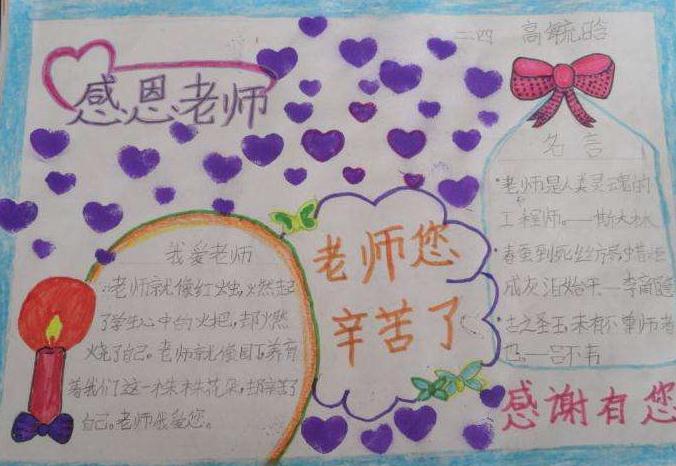 二四 高毓晗
感恩老师
名言
·老师是人类灵魂的
工程师。——斯大林
·春蚕到死丝方尽蜡炬
成灰泪始干——李商隐
·古之圣王,未有不尊师者
也。——吕不韦
我爱老师
老师就像红烛,燃起
了学生心中的火把,却燃
烧了自己。老师就像园丁,养育
着我们这一株株花朵,却辛苦了
自己。老师我爱您。
老师您
辛苦了
感谢有您